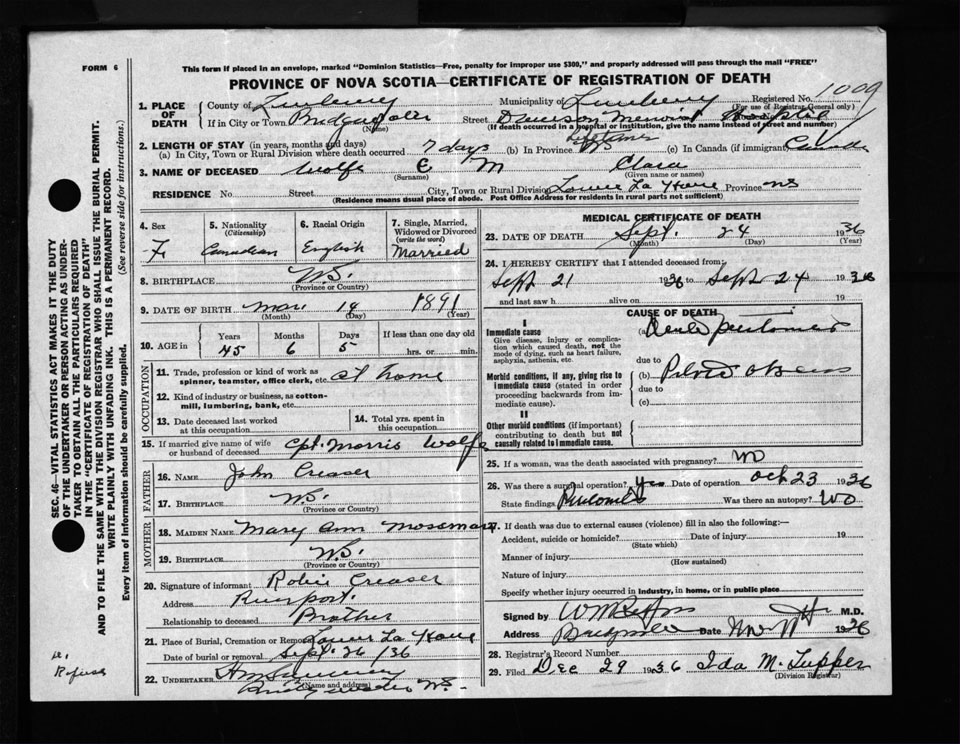 FORM 6
This form if placed in an envelope, marked "Dominion Statistics—Free, penalty for improper use $300," and properly addressed will pass through the mail "FREE"
PROVINCE OF NOVA SCOTIA—CERTIFICATE OF REGISTRATION OF DEATH
1009
1. PLACE OF DEATH
County of Lunenburg Municipality of Lunenburg Registered No.
(For use of Registrar General only)
If in City or Town Bridgewater Street Dawson Memorial Hospital
(Name) (If death occurred in a hospital or institution, give the name instead of street and number)
2. LENGTH OF STAY (in years, months and days)
(a) In City, Town or Rural Division where death occurred 7 days (b) In Province NS (c) In Canada (if immigrant) Canada
3. NAME OF DECEASED Wolfe E M Clara
(Surname) (Given name or names)
RESIDENCE No. Street City, Town or Rural Division Lower La Have Province NS
(Residence means usual place of abode. Post Office Address for residents in rural parts not sufficient)
4. Sex
F.
5. Nationality
(Citizenship)
Canadian
6. Racial Origin
English
7. Single, Married, Widowed or Divorced
(write the word)
Married
8. BIRTHPLACE N.S.
(Province or Country)
9. DATE OF BIRTH Mar 19 1891
(Month) (Day) (Year)
10. AGE in
Years Months Days If less than one day old
45 6 5 hrs. or min.
OCCUPATION
11. Trade, profession or kind of work as
spinner, teamster, office clerk, etc. at home
12. Kind of industry or business, as cotton-
mill, lumbering, bank, etc.
13. Date deceased last worked
at this occupation
14. Total yrs. spent in
this occupation
15. If married give name of wife
or husband of deceased Cpt. Morris Wolfe
FATHER
16. NAME John Creaser
17. BIRTHPLACE N.S.
(Province or Country)
MOTHER
18. MAIDEN NAME Mary Ann Mossman
19. BIRTHPLACE N.S.
(Province or Country)
20. Signature of informant Robie Creaser
Address Riverport.
Relationship to deceased Brother
21. Place of Burial, Cremation or Removal Lower La Have
Date of burial or removal Sept. 26/36
22. UNDERTAKER
(Name and address) Bridgewater NS.
MEDICAL CERTIFICATE OF DEATH
23. DATE OF DEATH Sept. 24 1936
(Month) (Day) (Year)
24. I HEREBY CERTIFY that I attended deceased from:
Sept 21 1936 to Sept 24 1936
and last saw h alive on 19
CAUSE OF DEATH
I
Immediate cause
Give disease, injury or complication which caused death, not the mode of dying, such as heart failure, asphyxia, asthenia, etc.
(a) Acute peritonitis
due to
Morbid conditions, if any, giving rise to immediate cause (stated in order proceeding backwards from immediate cause).
(b) Pelvic abscess
due to
(c)
II
Other morbid conditions (if important) contributing to death but not causally related to immediate cause.
25. If a woman, was the death associated with pregnancy? No
26. Was there a surgical operation? Yes Date of operation Oct 23 1936
State findings Peritonitis Was there an autopsy? No
27. If death was due to external causes (violence) fill in also the following:—
Accident, suicide or homicide? Date of injury 19
(State which)
Manner of injury
(How sustained)
Nature of injury
Specify whether injury occurred in industry, in home, or in public place
Signed by M.D.
Address Bridgewater Date Nov 1936
28. Registrar's Record Number
29. Filed Dec 29 1936 Ida M. Tupper
(Division Registrar)
SEC. 46—VITAL STATISTICS ACT MAKES IT THE DUTY
OF THE UNDERTAKER OR PERSON ACTING AS UNDER-
TAKER TO OBTAIN ALL THE PARTICULARS REQUIRED
IN THE "CERTIFICATE OF REGISTRATION OF DEATH"
AND TO FILE THE SAME WITH THE DIVISION REGISTRAR WHO SHALL ISSUE THE BURIAL PERMIT.
WRITE PLAINLY WITH UNFADING INK. THIS IS A PERMANENT RECORD.
Every item of information should be carefully supplied. (See reverse side for instructions.)